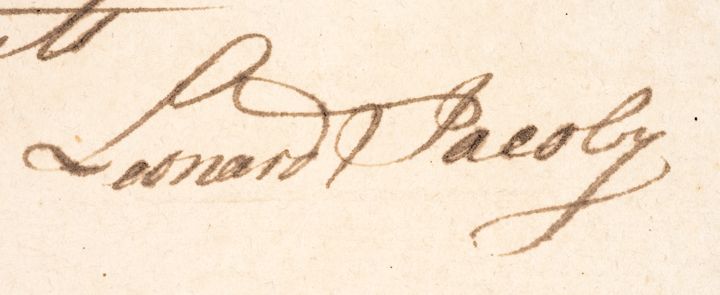 Leonard Jacoby